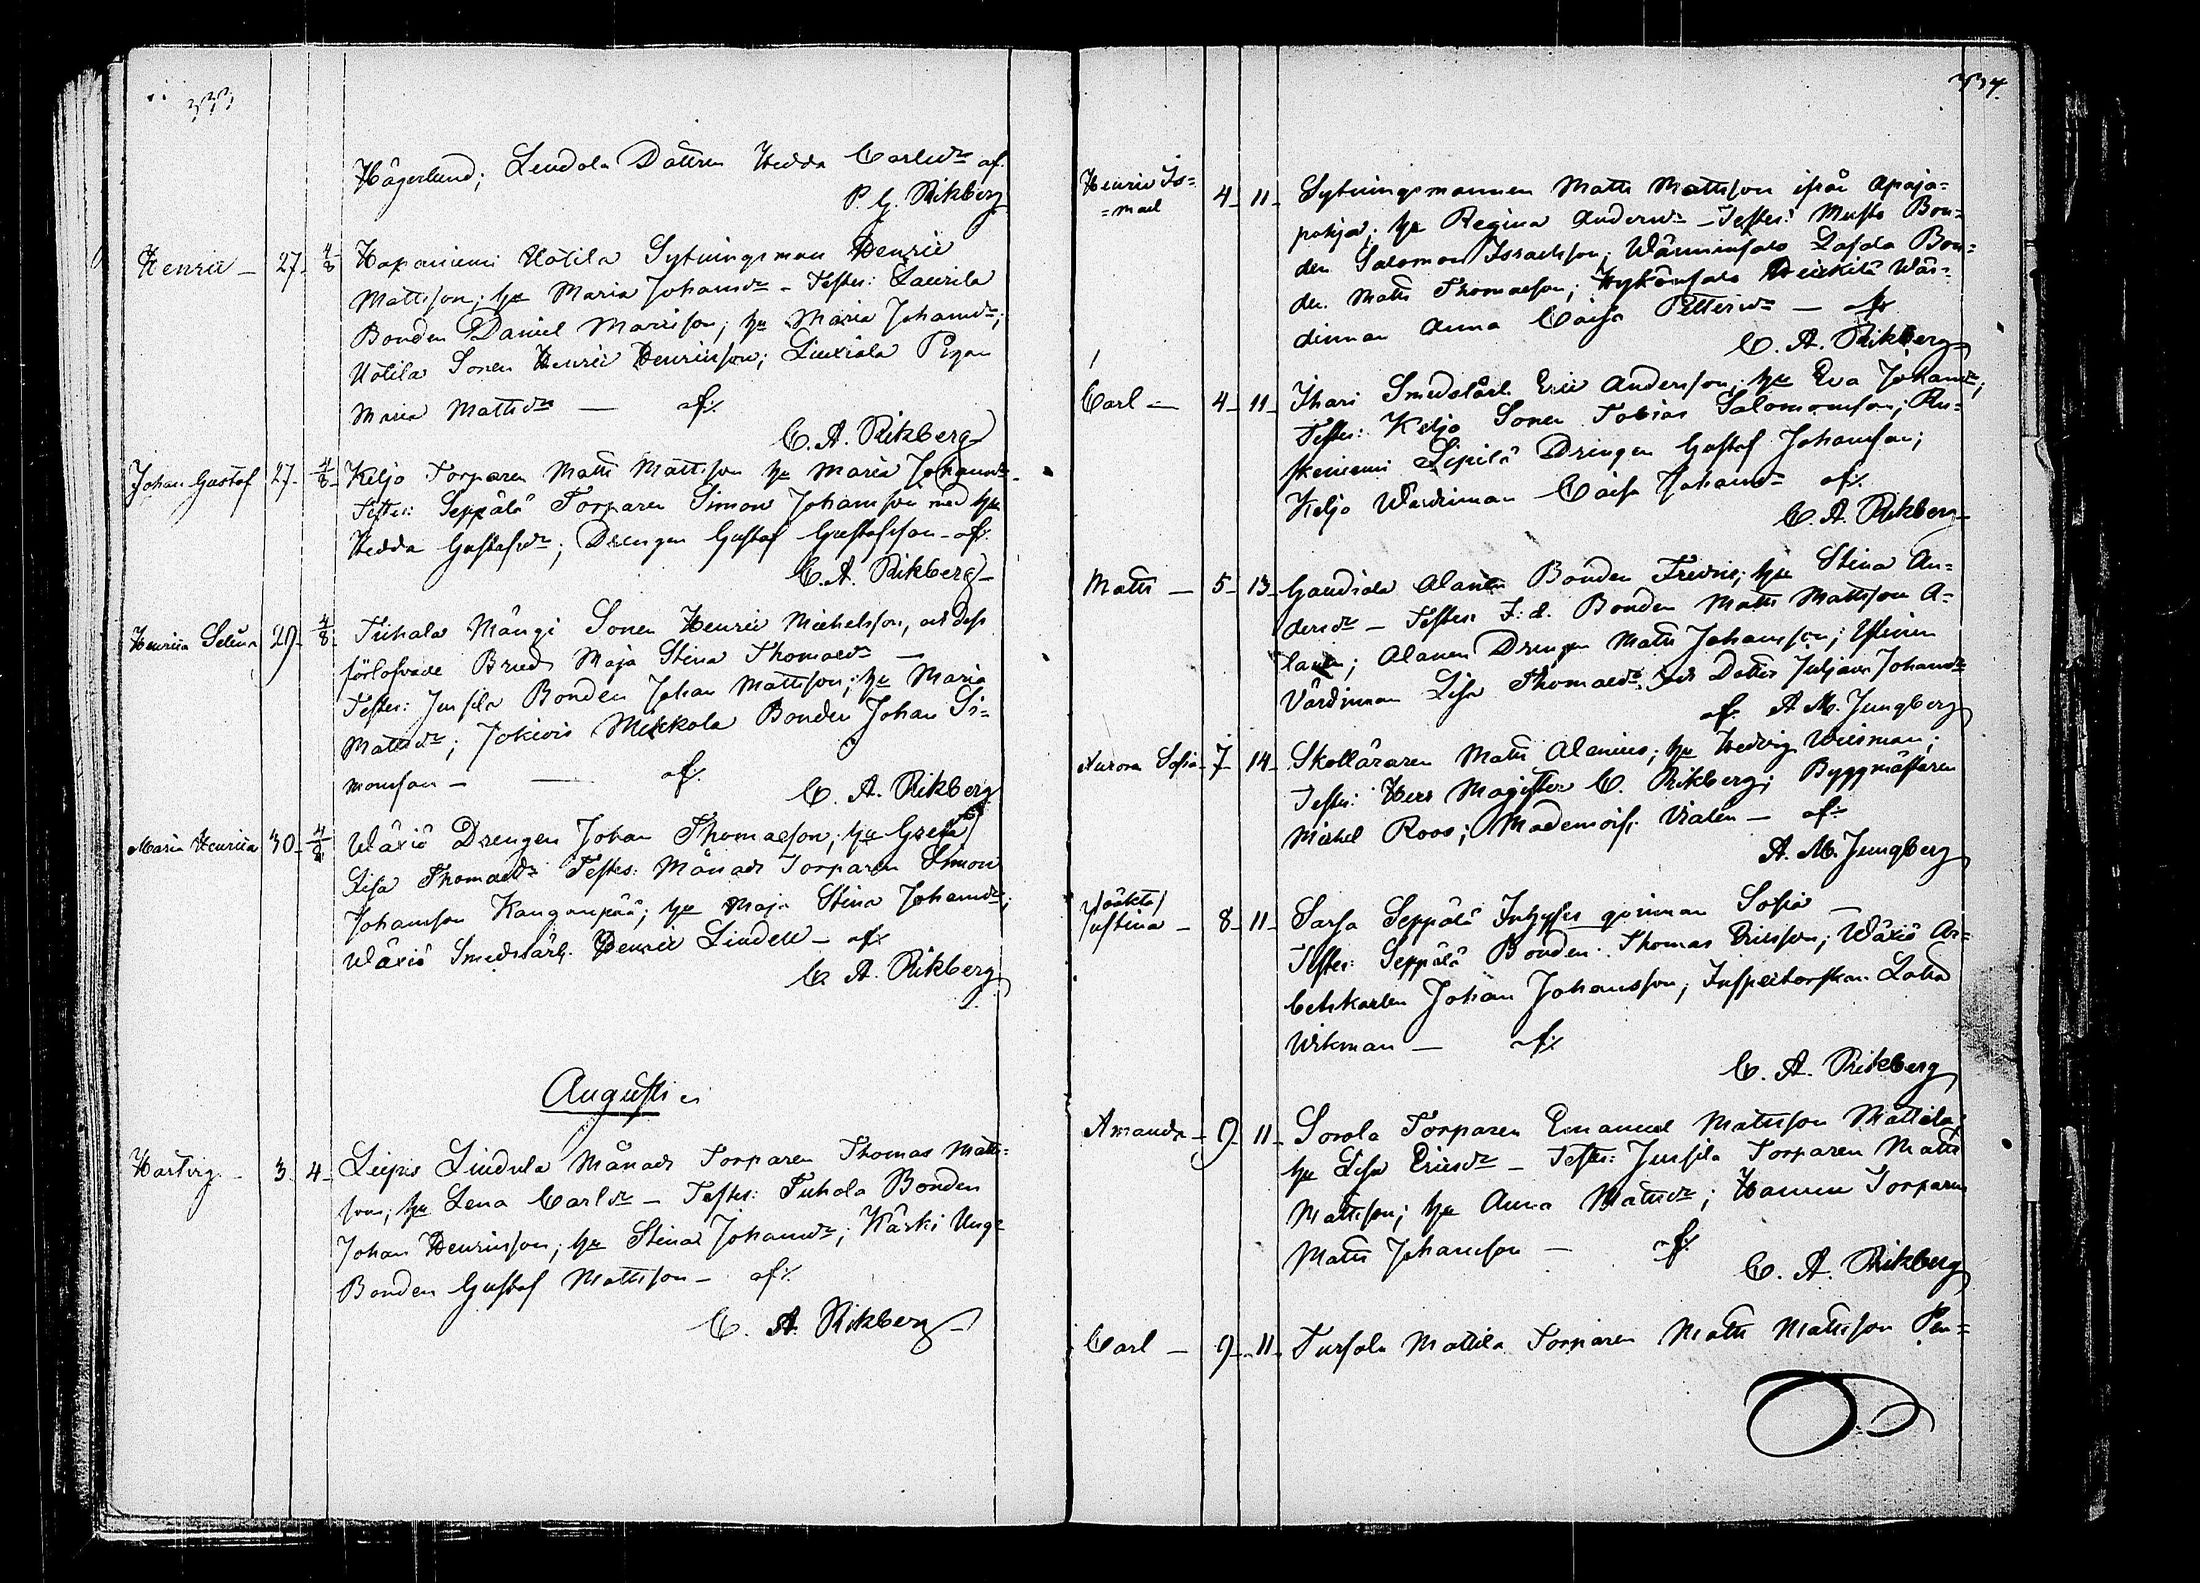 333
Hägerlund; Lendola Dottren Hedda Carlsdr af
P. G. Rikberg
Henric - 27. 4/8 Hapaniemi Uotila Sytningsman Henric
Mattsson; hu Maria Johansdr - Testes: Laurila
Bonden Daniel Mattsson; hu Maria Johansdr;
Uotila Sonen Henric Henricsson; Pigan
Maria Mattsdr - af
C. A. Rikberg
Johan Gustaf 27. 4/8. Keljo Torparen Matts Mattsson hu Maria Johansdr.
Testes: Seppälä Torparen Simon Johansson med hu
Hedda Gustafsdr; Drengen Gustaf Gustafsson - af
C. A. Rikberg
Henrica Selina 29. 4/8. Tuhala Mångi Sonen Henric Michelsson, och dess
förlofvade Brud Maja Stina Thomasdr -
Testes: Junsila Bonden Johan Mattsson; hu Maria
Mattsdr; Jokiois Mikkola Bonden Johan Si=
monsson - af
C. A. Rikberg
Maria Henrica 30. 4/8. Wäxiö Drengen Johan Thomasson; hu Greta
Lisa Thomasdr Testes: Månads Torparen Simon
Johansson Kanganpää; hu Maja Stina Johansdr;
Wäxiö Smedslärl. Henric Lindell - af
C. A. Rikberg
Augusti
Hartvig - 3. 4. Liepis Lindula Månads Torparen Thomas Matts=
son; hu Lena Carlsdr - Testes: Tuhola Bonden
Johan Henricsson; hu Stina Johansdr; Kärki Ung=
Bonden Gustaf Mattsson - af
C. A. Rikberg
334.
Henric Is=
=mael 4 - 11 - Sytningsmannen Matts Mattsson ifrån Apaja=
pohja; hu Regina Andersdr - Testes: Musto Bon=
den Salomon Isracsson; Wänninsalo Bon=
den Matts Thomasson; Heickilä Wär=
dinnan Anna Caisa Pettersdr - af
C. A. Rikberg
Carl - 4 - 11 - Ihari Smedslärl. Eric Andersson; hu Eva Johansdr;
Testes: Keljo Sonen Tobias Salomonsson; Ru=
skeniemi Sipilä Drengen Gustaf Johansson;
Keljo Wärdinnan Caisa Johansdr af
C. A. Rikberg
Matts - 5 - 13 - Gaudiala Alanen Bonden Fredric; hu Stina An=
dersdr - Testes F: d. Bonden Matts Mattsson A=
lanen; Alanen Drengen Matts Johansson;
Värdinnan Lisa Thomasdr och Dotter Juljana Johansdr
af A. M. Jungberg
Aurora Sofia - 7 - 14 - Skolläraren Matts Alenius; hu Hedvig Wiisman;
Testes: Herr Magister C. Rikberg; Byggmästaren
Michel Roos; Mademois: Vialen - af
A. M. Jungberg
/oäkta/
Justina - 8 - 11 - Sarsa Seppälä Inhyses qvinnan Sofia -
Testes: Seppälä Bonden Thomas Ericsson; Wäxiö Ar=
betskarlen Johan Johansson; Inspectorskan Lovisa
Wikman - af
C. A. Rikberg
Amanda - 9 - 11 - Sorola Torparen Emanuel Mattsson Mattila;
hu Lisa Ericsdr - Testes: Junsila Torparen Matts
Mattsson; hu Anna Mattsdr; Torparen
Matts Johansson - af
C. A. Rikberg
Carl - 9 - 11 - Tursola Mattila Torparen Matts Mattsson Pen=